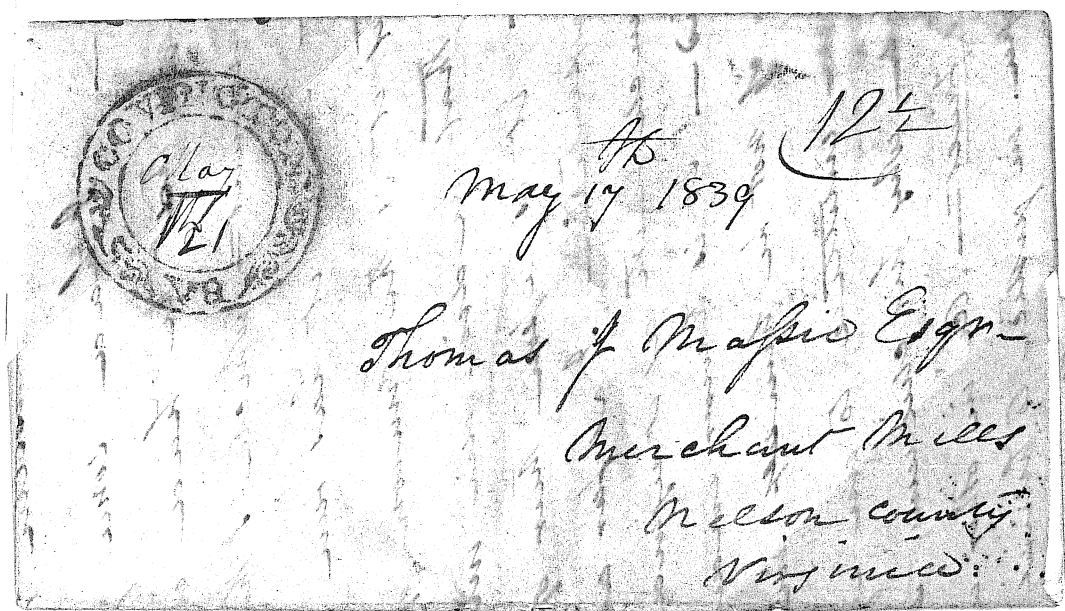 COVINGTON
VA
May
21
12½
May 17 1839
Thomas J Massie Esqr
Merchant Mills
Nelson county
Virginia